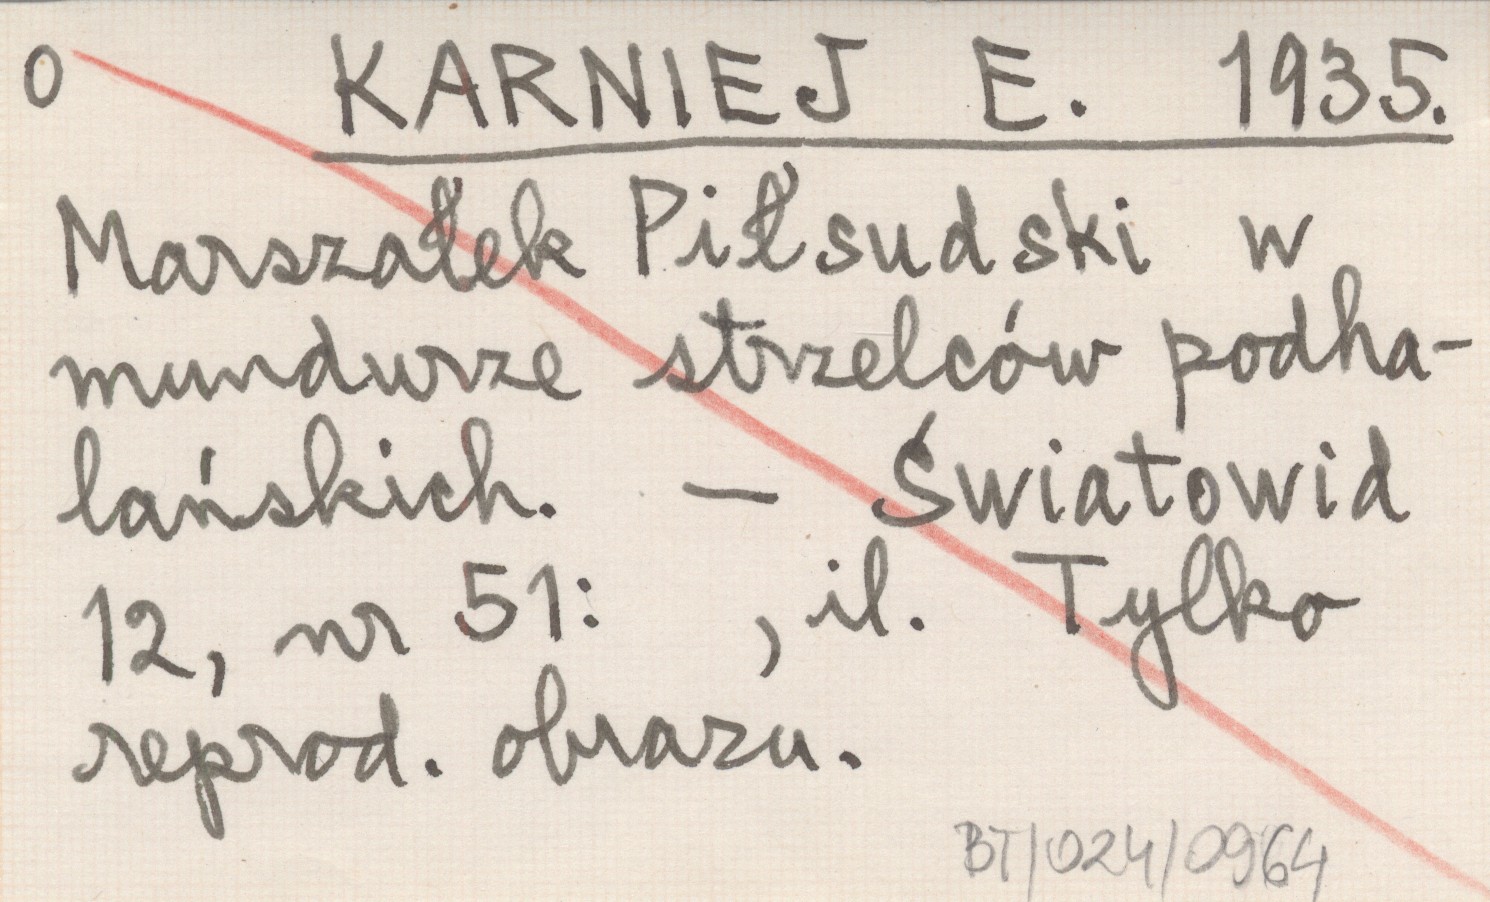 0 KARNIEJ E. 1935.
Marszałek Piłsudski w
mundurze strzelców podha-
lańskich. — Światowid
12, nr 51: , il. Tylko
reprod. obrazu.
BT/024/0964